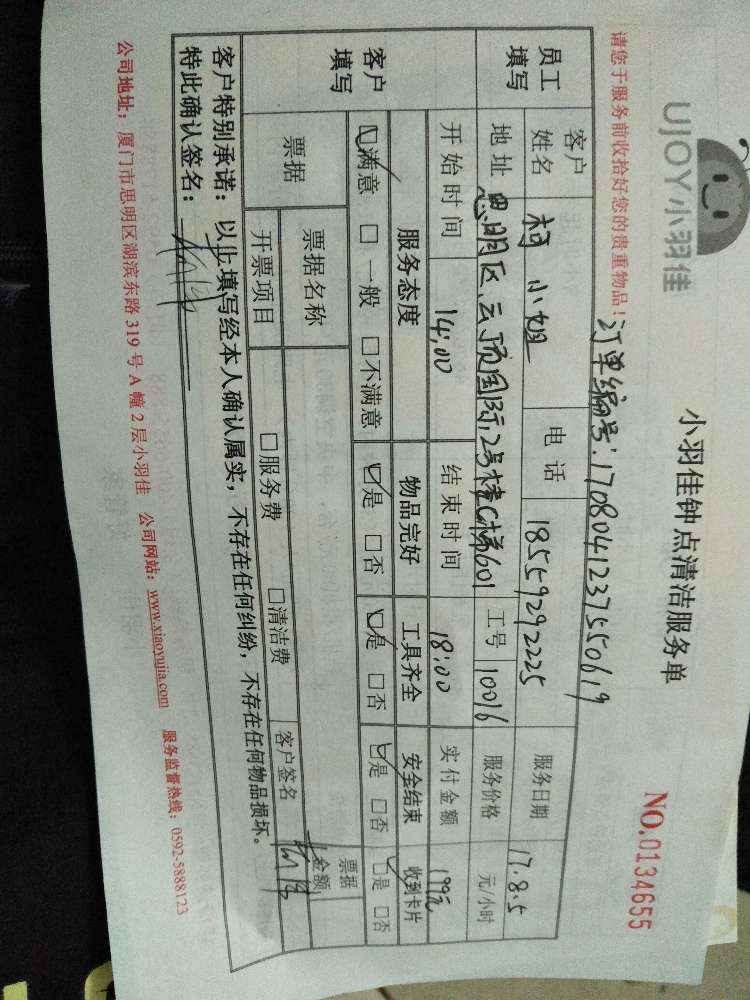 UJOY小羽佳
小羽佳钟点清洁服务单
NO.0134655
请您于服务前收拾好您的贵重物品！
订单编号:170804123755061９
员工填写
客户姓名 柯小姐 电话 18559292225 服务日期 17.8.5
地址 思明区云顶国际2号楼C梯601 工号 10016 服务价格 元/小时
开始时间 14:00 结束时间 18:00 实付金额 199元
客户填写
服务态度 物品完好 工具齐全 安全结束 收到卡片
☑满意 □一般 □不满意 ☑是 □否 ☑是 □否 ☑是 □否 ☑是 □否
票据 票据名称 票据金额
开票项目 □服务费 □清洁费 客户签名
客户特别承诺：以上填写经本人确认属实，不存在任何纠纷，不存在任何物品损坏。
特此确认签名：
公司地址：厦门市思明区湖滨东路319号A幢2层小羽佳 公司网站：www.xiaoyujia.com 服务监督热线：0592-5888123